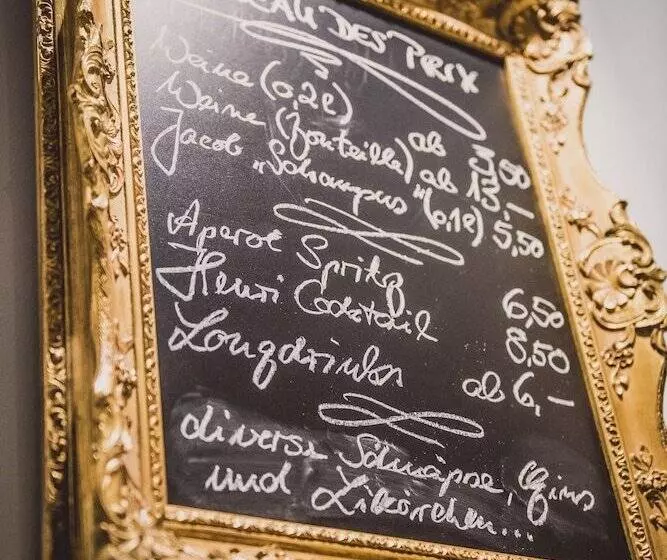 DES PRIX
Weine (0,2l) ab 3,50
Weine (Bouteille) ab 13,–
Jacob „Schampus“ (0,1l) 5,50
Aperol Spritz 6,50
Henri Cocktail 8,50
Longdrinks ab 6,–
diverse Schnäpse, Gins
und Likörchen...